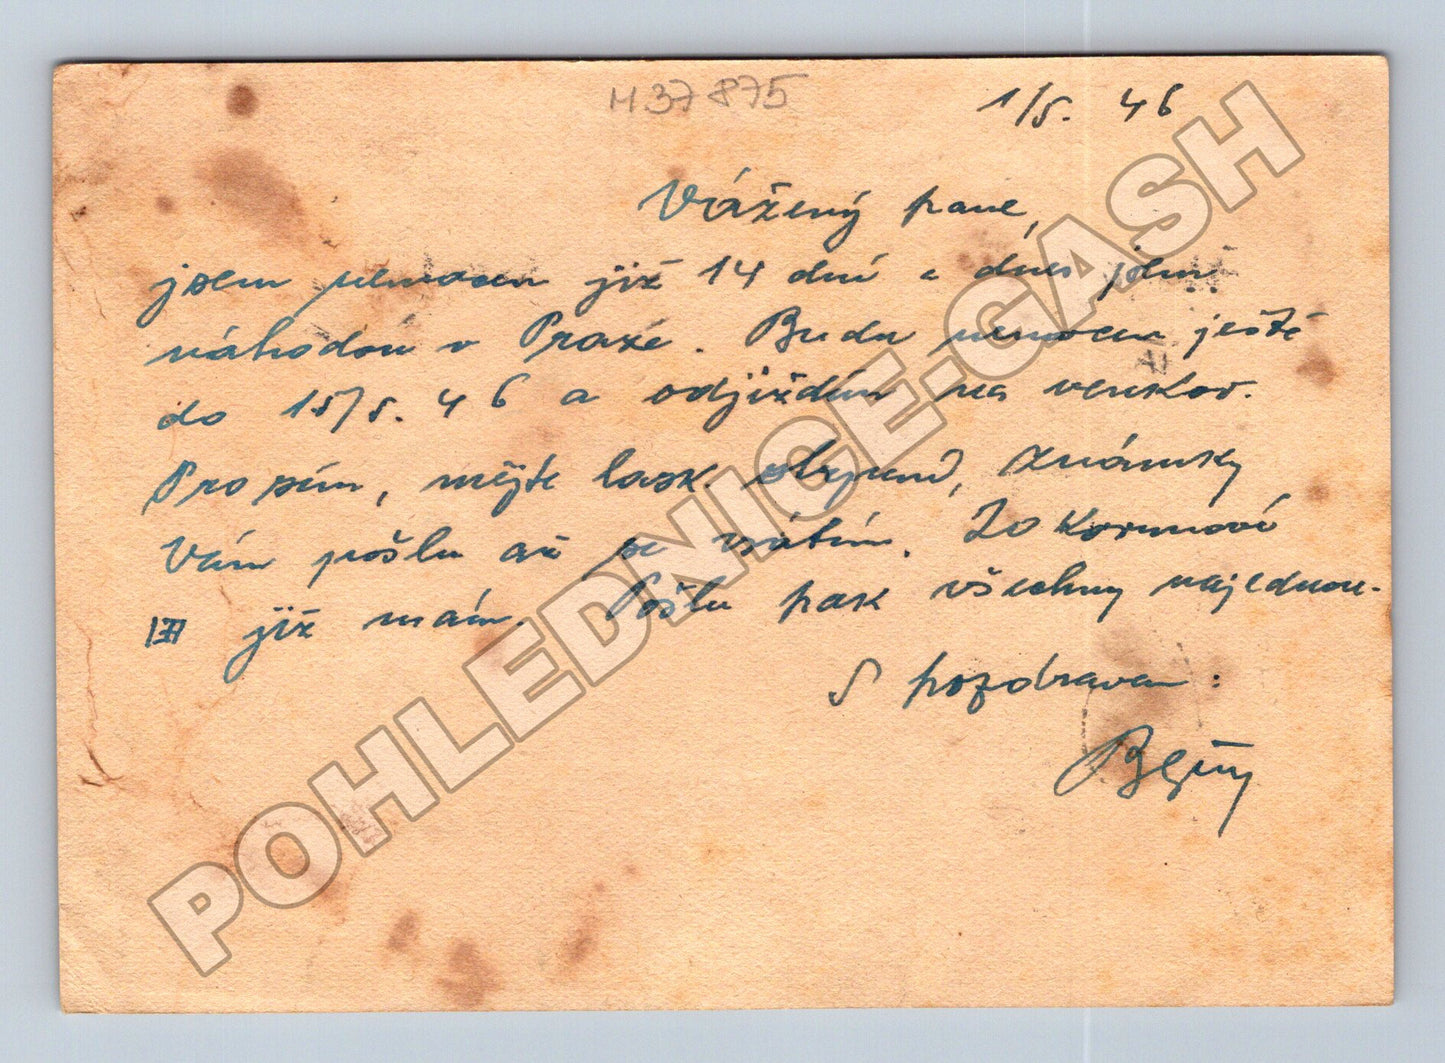 H37875
1/5. 46
Vážený pane,
jsem nemocen již 14 dní a dnes jsem
náhodou v Praze. Budu nemocen ještě
do 15/5. 46 a odjíždím na venkov.
Prosím, mějte lask. strpení, známky
Vám pošlu až se vrátím. 20 korunové
již mám. Pošlu pak všechny najednou.
S pozdravem:
POHLEDNICE.GASH